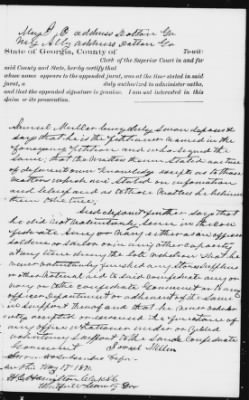 My P. O. address Dalton Ga
My Atty address Dalton Ga
State of Georgia, County of
To-wit:
Clerk of the Superior Court in and for
said County and State, hereby certify that
whose name appears to the appended jurat, was at the time stated in said
jurat, a duly authorized to administer oaths,
and that the appended signature is genuine. I am not interested in this
claim or its prosecution.
Israel Miller being duly sworn deposes &
says that he is the petitioner named in the
foregoing Petition and who signed the
same, that the matters therein stated are true
of deponents own knowledge except as to those
matters which are stated on information
and belief and as to those matters he believes
them to be true,
And deponent further says that
he did not voluntarily serve in the Con
federate Army or Navy either as an officer
soldier or sailor or in any other capacity
at any time during the late rebellion That he
never voluntarily furnished any stores supplies
or other material aid to said Confederate army or
navy or to the confederate Government or to any
officer department or adherent of the same
in support thereof and that he never volun
tarily accepted or exercised the functions of
any office whatsoever under or yielded
voluntary support to the said Confederate
Government Israel Miller
Sworn to & subscribed before
me this May 17th 1871
Whitfield County Ga